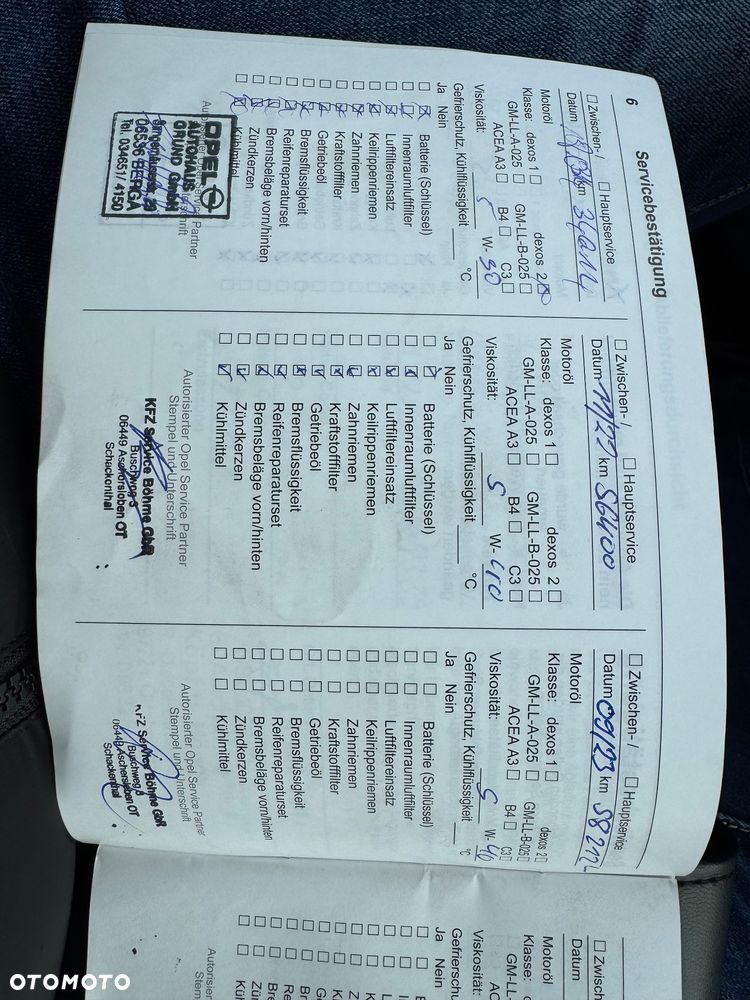 6
Servicebestätigung
☐ Zwischen- / ☐ Hauptservice
Datum km 34014
Motoröl
Klasse: dexos 1 ☐ dexos 2 ☒
GM-LL-A-025 ☐ GM-LL-B-025 ☐
ACEA A3 ☐ B4 ☐ C3 ☐
Viskosität: 5 W- 30
Gefrierschutz, Kühlflüssigkeit ____ °C
Ja Nein
☐ ☒ Batterie (Schlüssel)
☐ ☒ Innenraumluftfilter
☐ ☒ Luftfiltereinsatz
☐ ☒ Keilrippenriemen
☐ ☒ Zahnriemen
☐ ☒ Kraftstofffilter
☐ ☒ Getriebeöl
☐ ☒ Bremsflüssigkeit
☐ ☒ Reifenreparaturset
☐ ☒ Bremsbeläge vorn/hinten
☐ ☒ Zündkerzen
☐ ☒ Kühlmittel
Service Partner
OPEL
AUTOHAUS
GRUND GmbH
06536 BERGA
Tel. 034651/ 4150
☐ Zwischen- / ☐ Hauptservice
Datum 11/22 km 56400
Motoröl
Klasse: dexos 1 ☐ dexos 2 ☐
GM-LL-A-025 ☐ GM-LL-B-025 ☐
ACEA A3 ☐ B4 ☐ C3 ☐
Viskosität: 5 W- 40
Gefrierschutz, Kühlflüssigkeit ____ °C
Ja Nein
☐ ☒ Batterie (Schlüssel)
☐ ☒ Innenraumluftfilter
☐ ☒ Luftfiltereinsatz
☐ ☒ Keilrippenriemen
☐ ☒ Zahnriemen
☐ ☒ Kraftstofffilter
☐ ☒ Getriebeöl
☐ ☒ Bremsflüssigkeit
☐ ☒ Reifenreparaturset
☐ ☒ Bremsbeläge vorn/hinten
☐ ☒ Zündkerzen
☐ ☒ Kühlmittel
Autorisierter Opel Service Partner
Stempel und Unterschrift
KFZ Service Böhme GbR
Buschweg 3
06449 Aschersleben OT
Schackenthal
☐ Zwischen- / ☐ Hauptservice
Datum 09/23 km 58212
Motoröl
Klasse: dexos 1 ☐ dexos 2 ☐
GM-LL-A-025 ☐ GM-LL-B-025 ☐
ACEA A3 ☐ B4 ☐ C3 ☐
Viskosität: 5 W- 40
Gefrierschutz, Kühlflüssigkeit ____ °C
Ja Nein
☐ ☐ Batterie (Schlüssel)
☐ ☐ Innenraumluftfilter
☐ ☐ Luftfiltereinsatz
☐ ☐ Keilrippenriemen
☐ ☐ Zahnriemen
☐ ☐ Kraftstofffilter
☐ ☐ Getriebeöl
☐ ☐ Bremsflüssigkeit
☐ ☐ Reifenreparaturset
☐ ☐ Bremsbeläge vorn/hinten
☐ ☐ Zündkerzen
☐ ☐ Kühlmittel
Autorisierter Opel Service Partner
Stempel und Unterschrift
KFZ Service Böhme GbR
Buschweg 3
06449 Aschersleben OT
Schackenthal
☐ Zwischen
Datum
Motoröl
Klasse: de
GM-LL
ACE
Viskosität:
Gefrierschutz, K
Ja Nein
☐ ☐ B
☐ ☐ Inn
☐ ☐ Luft
☐ ☐ Kei
☐ ☐ Zah
☐ ☐ Kra
☐ ☐ Get
☐ ☐ Bre
☐ ☐ Rei
☐ ☐ Bre
☐ ☐ Zün
☐ ☐ Küh
Autorisi
St
OTOMOTO